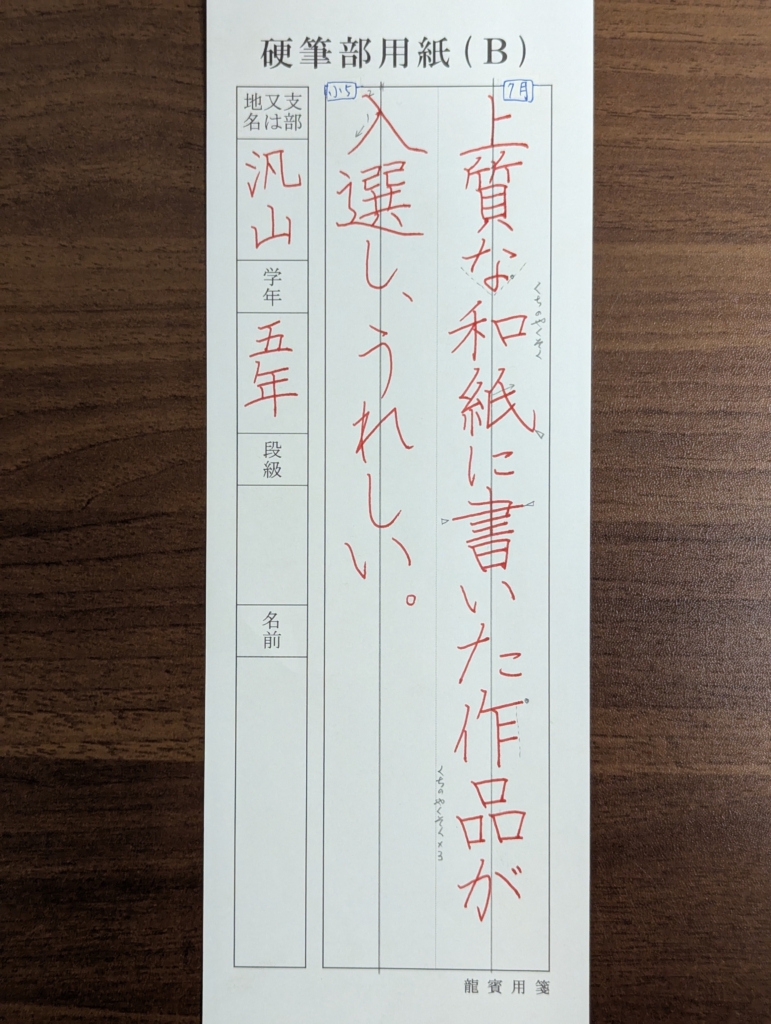 硬筆部用紙(B)
7月
上質な和紙に書いた作品が
くちのやくそく
くちのやくそく×3
小5
入選し、うれしい。
支部又は地名
汎山
学年
五年
段級
名前
龍賓用箋